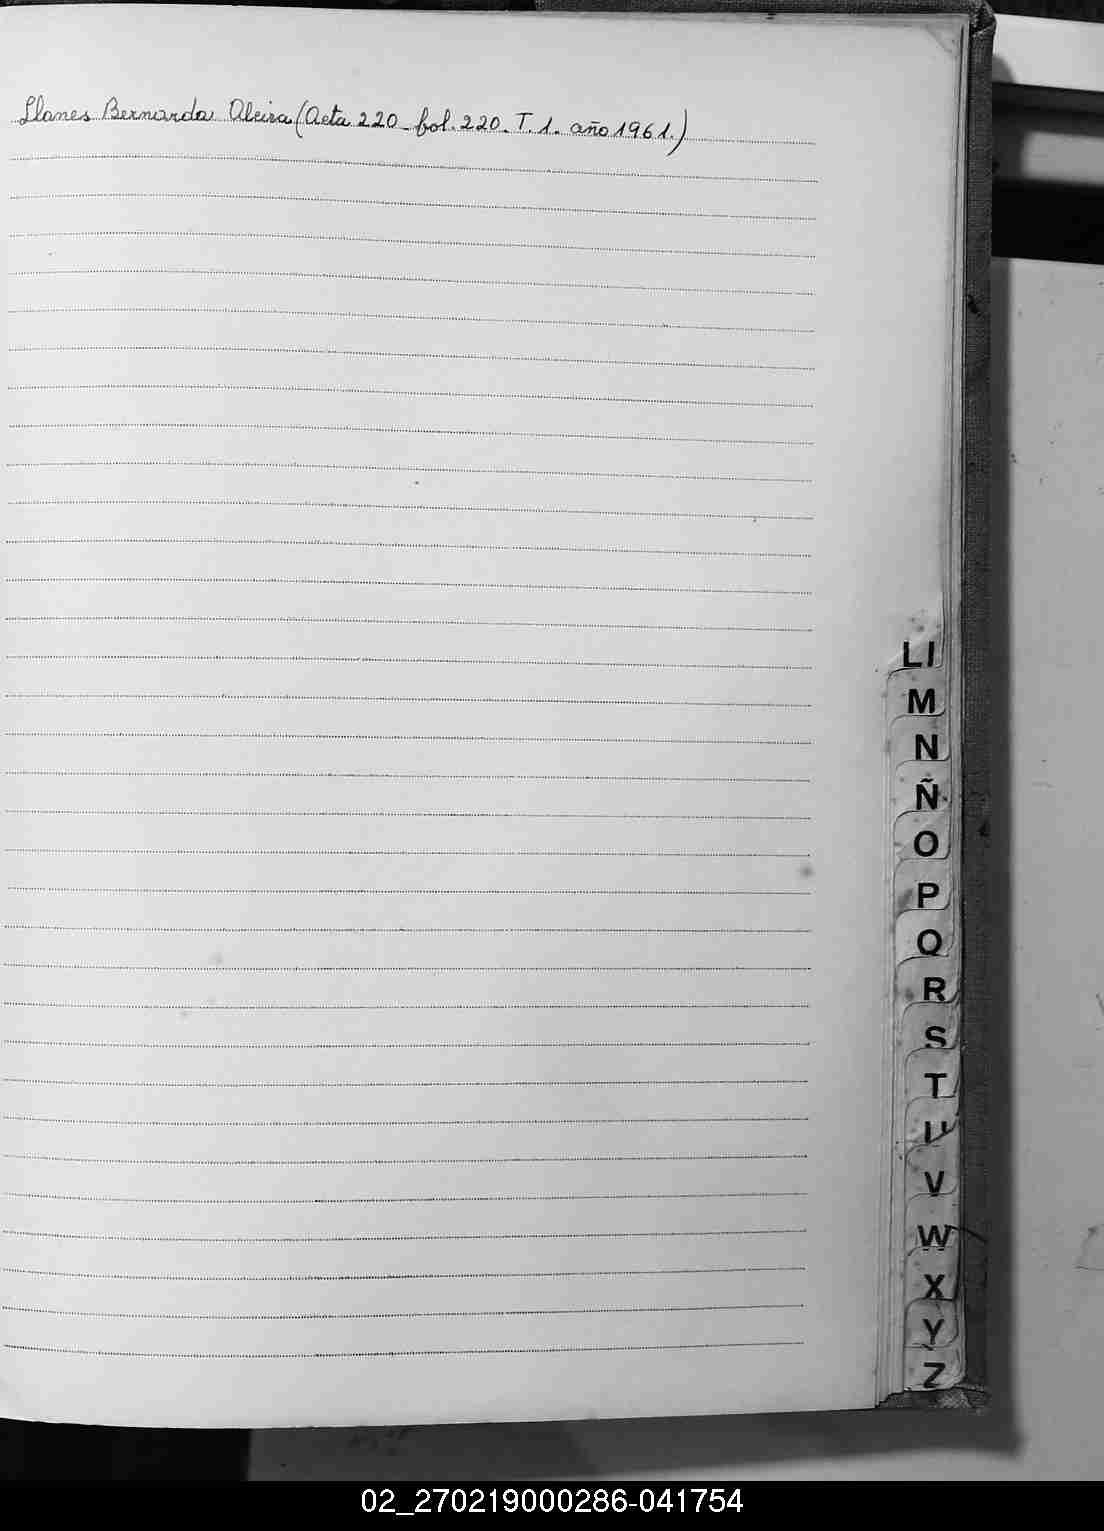 Llanes Bernarda Alcira (Acta 220 - fol. 220. T. 1. año 1961.)
Ll
M
N
Ñ
O
P
Q
R
S
T
U
V
W
X
Y
Z
02_270219000286-041754